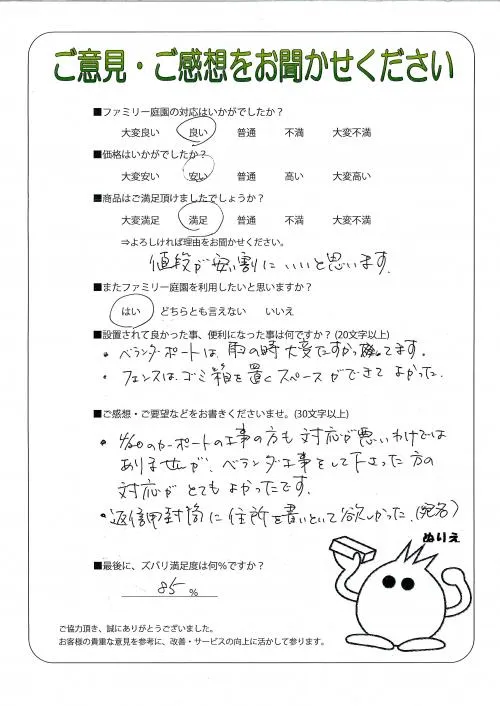 ご意見・ご感想をお聞かせください
■ファミリー庭園の対応はいかがでしたか?
大変良い 良い 普通 不満 大変不満
■価格はいかがでしたか?
大変安い 安い 普通 高い 大変高い
■商品はご満足頂けましたでしょうか?
大変満足 満足 普通 不満 大変不満
⇒よろしければ理由をお聞かせください。
値段が安い割にいいと思います。
■またファミリー庭園を利用したいと思いますか?
はい どちらとも言えない いいえ
■設置されて良かった事、便利になった事は何ですか?(20文字以上)
・ベランダポートは、雨の時大変たすかってます。
・フェンスは、ゴミ箱を置くスペースができてよかった。
■ご感想・ご要望などをお書きくださいませ。(30文字以上)
・4/20のカーポートの工事の方も対応が悪いわけでは
ありませんが、ベランダ工事をして下さった方の
対応がとてもよかったです。
・返信用封筒に住所を書いといて欲しかった。(宛名)
ぬりえ
■最後に、ズバリ満足度は何%ですか?
85 %
ご協力頂き、誠にありがとうございました。
お客様の貴重な意見を参考に、改善・サービスの向上に活かして参ります。